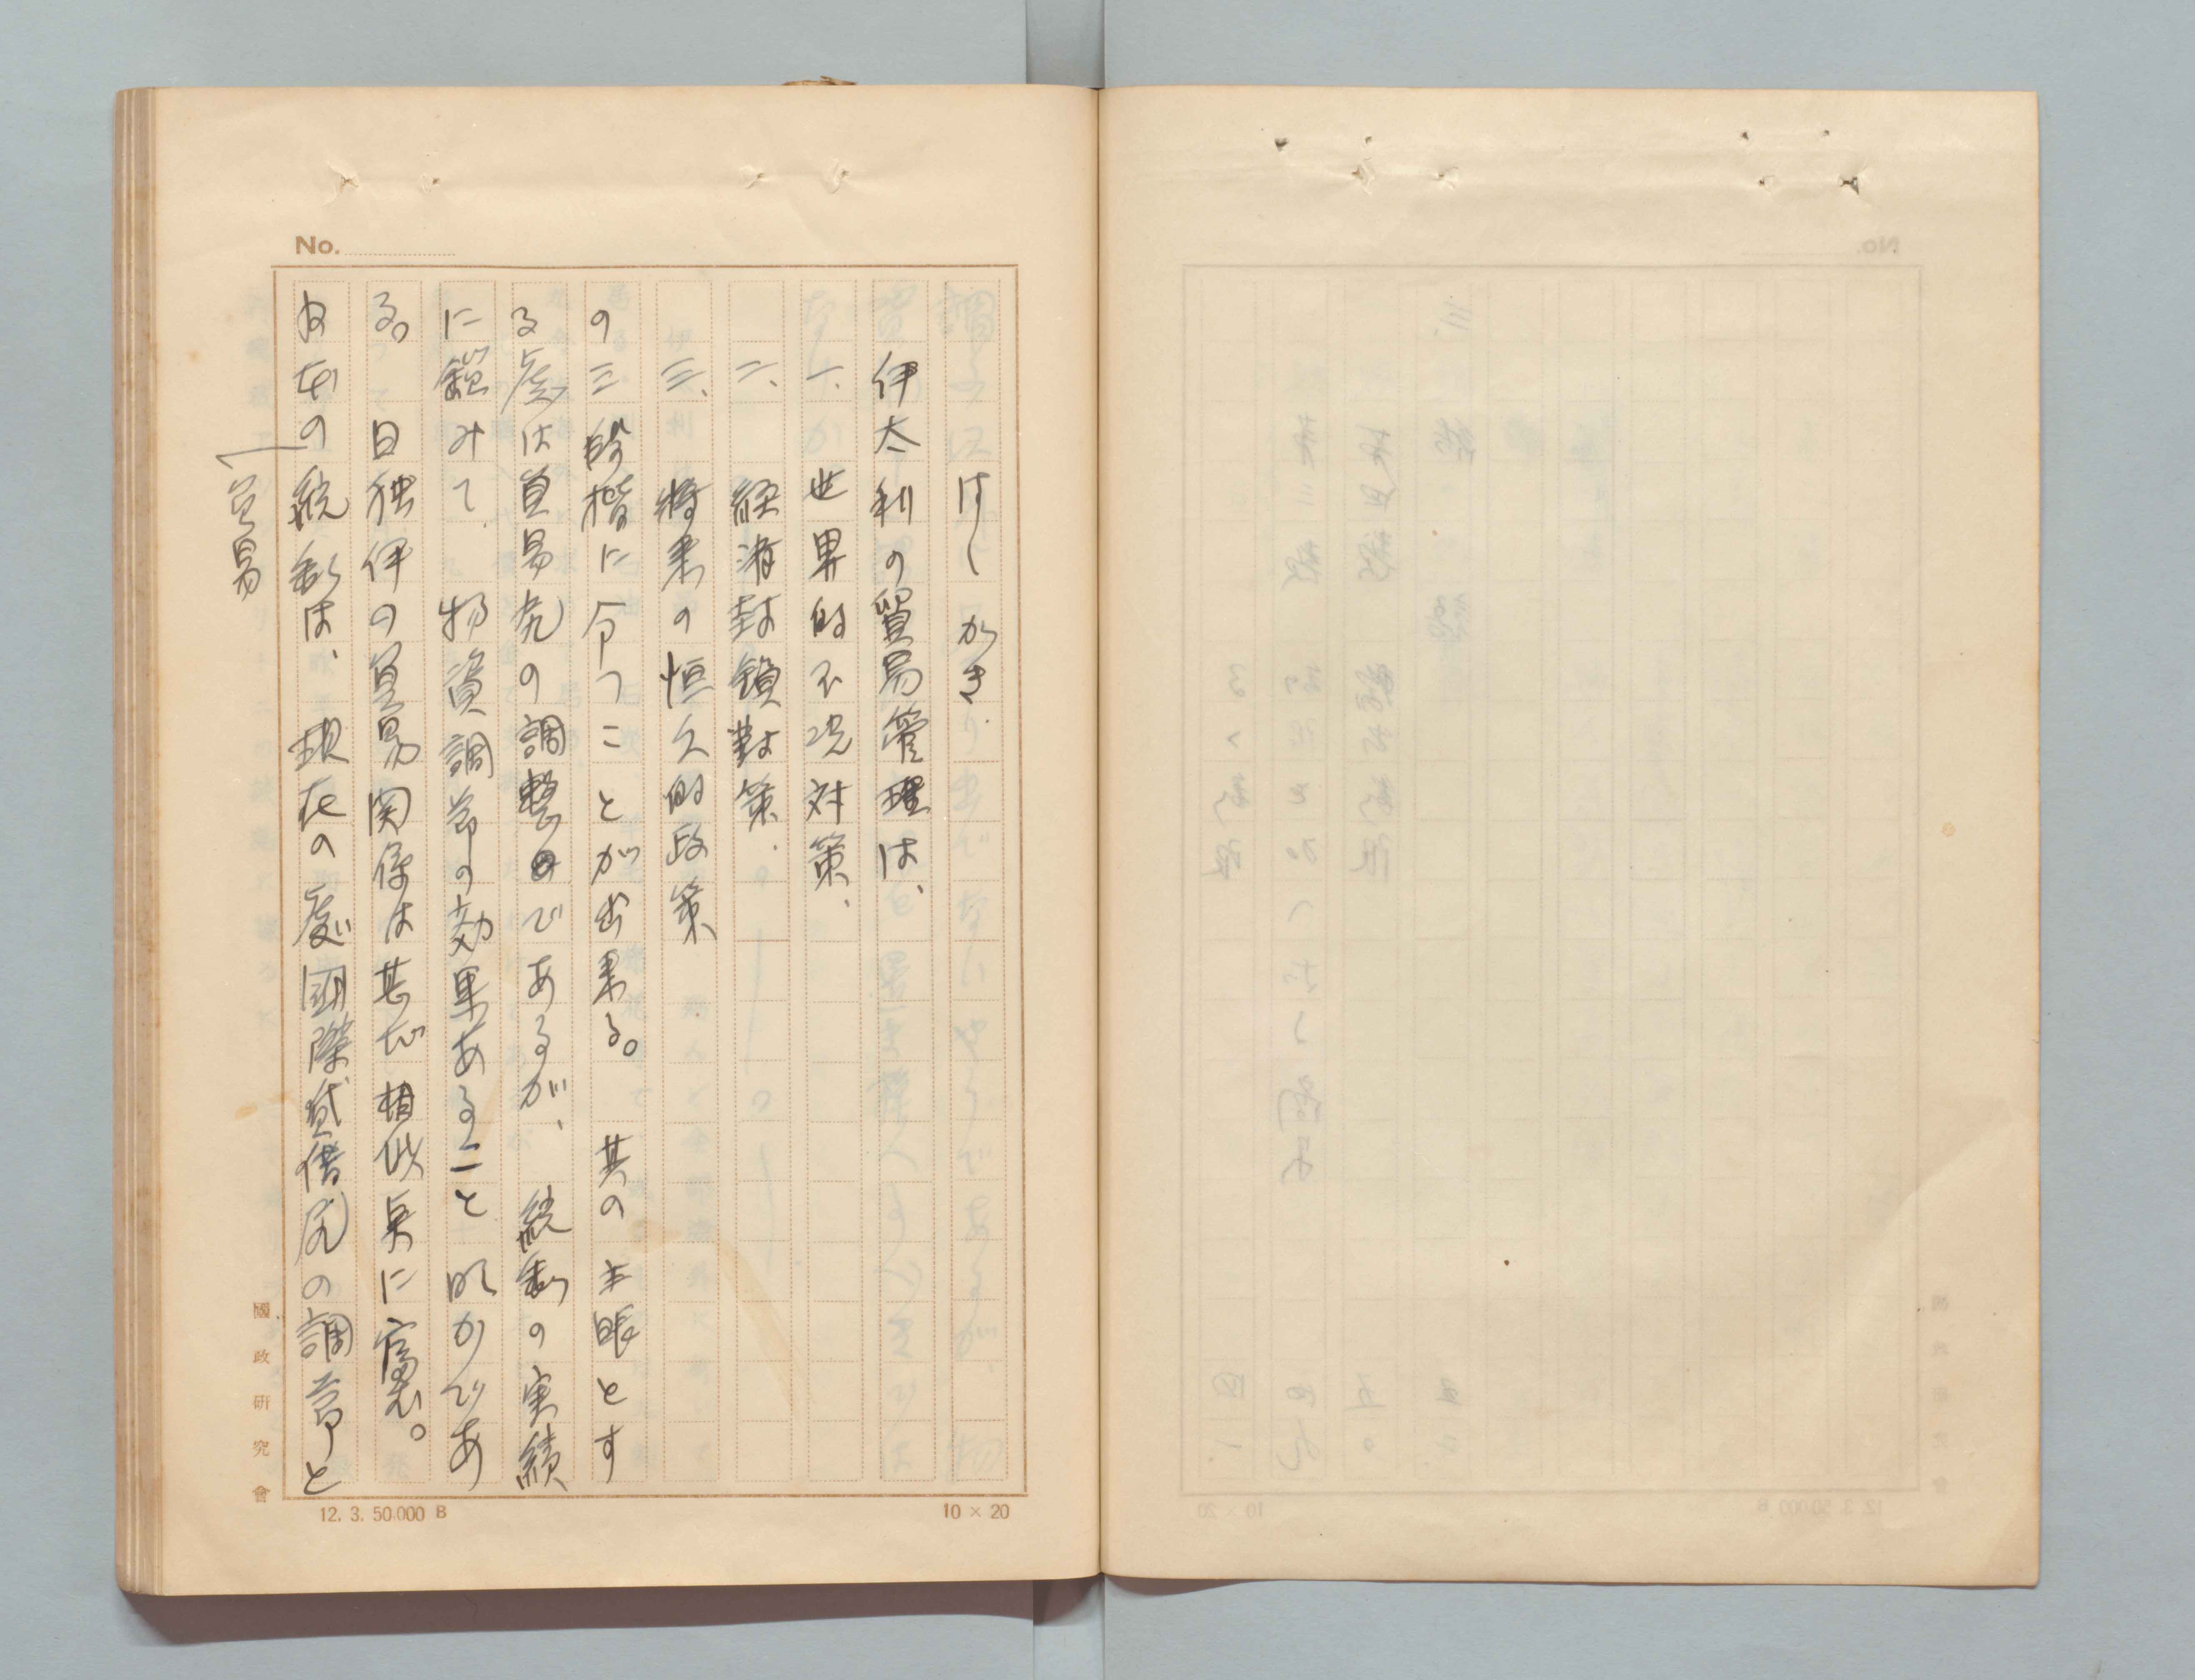 No.
はしがき.
伊太利の貿易管理は、
一、世界的不況対策、
二、経済封鎖對策.
三、将来の恒久的政策
の三段楷に分つことが出来る。其の主眼とす
る處は貿易尻の調整であるが、統制の実績
に鑑みて.物資調節の効果あること明かであ
る。日独伊の貿易関係は甚だ相似点に富む。
日本の貿易統制は、現在の處国際貸借尻の調節と
國政研究會
12. 3. 50.000 B
10 × 20